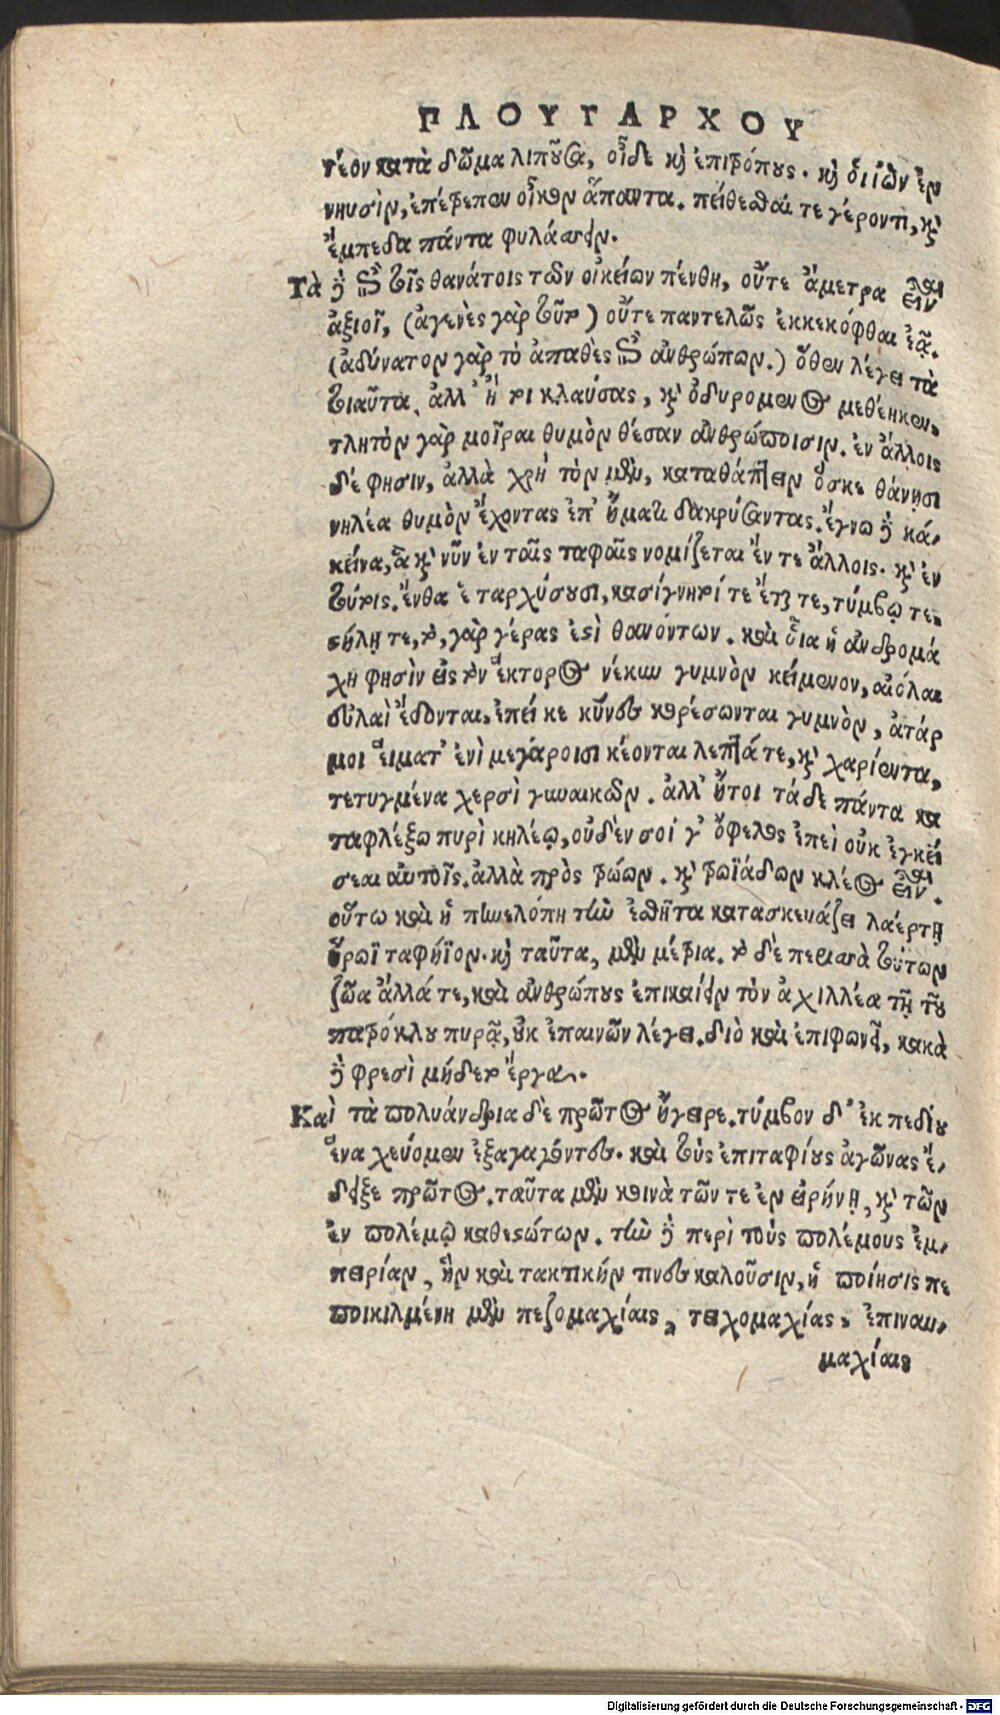 ΠΛΟΥΤΑΡΧΟΥ
τέον κατὰ δῶμα λιποῦσα, οἶδε καὶ ἐπιτρόπους. καὶ ὁι ἰὼν ἐν
νηυσὶν, ἐπέτρεπεν οἶκον ἅπαντα. πείθεσθαί τε γέροντι, καὶ
ἔμπεδα πάντα φυλάσσειν.
Τὰ δὲ ἐπὶ τοῖς θανάτοις τῶν οἰκείων πένθη, οὔτε ἄμετρα εἶναι
ἀξιοῖ, (ἀγενὲς γὰρ τοῦτο) οὔτε παντελῶς ἐκκεκόφθαι ἐᾷ.
(ἀδύνατον γὰρ τὸ ἀπαθὲς ἐπὶ ἀνθρώπων.) ὅθεν λέγει τὰ
τοιαῦτα, ἀλλ' ἤ τοι κλαύσας, καὶ ὀδυρομενος μεθέηκεν,
τλητὸν γὰρ μοῖραι θυμὸν θέσαν ἀνθρώποισιν. ἐν ἄλλοις
δέ φησιν, ἀλλὰ χρὴ τὸν μὲν, καταθάπτειν ὅς κε θάνῃσι
νηλέα θυμὸν ἔχοντας ἐπ' ἤματι δακρύσαντας. ἔγνω δὲ κά-
κεῖνα, ἃ καὶ νῦν ἐν ταῖς ταφαῖς νομίζεται ἔν τε ἄλλοις. καὶ ἐν
τούτοις. ἔνθα ἑ ταρχύσουσι, κασίγνητοί τε ἔται τε, τύμβῳ τε
στήλῃ τε, τὸ, γὰρ γέρας ἐστὶ θανόντων. καὶ οἷα ἡ ἀνδρομά
χη φησὶν εἰς τὸν ἕκτορος νέκυν γυμνὸν κείμενον, αἰόλαι
εὐλαὶ ἔδονται, ἐπεί κε κῦνες κορέσωνται γυμνὸν, ἀτάρ
μοι εἵματ' ἐνὶ μεγάροισι κέονται λεπτά τε, καὶ χαρίεντα,
τετυγμένα χερσὶ γυναικῶν. ἀλλ' ἤτοι τάδε πάντα κα
ταφλέξω πυρὶ κηλέῳ, οὐδὲν σοί γ' ὄφελος ἐπεὶ οὐκ ἐγκεί
σεαι αὐτοῖς. ἀλλὰ πρὸς τρώων. καὶ τρωϊάδων κλέος εἶναι.
οὕτω καὶ ἡ πηνελόπη τὴν ἐσθῆτα κατασκευάζει λαέρτῃ
ἥρωϊ ταφήϊον. καὶ ταῦτα, μὲν μέτρια. τὸ δὲ περιττὰ τούτων
ζῶα ἄλλά τε, καὶ ἀνθρώπους ἐπικαίειν τὸν ἀχιλλέα τῇ τοῦ
πατρόκλου πυρᾷ, οὐκ ἐπαινῶν λέγει. διὸ καὶ ἐπιφωνεῖ, κακὰ
δὲ φρεσὶ μήδετο ἔργα.
Καὶ τὰ πολυάνδρια δὲ πρῶτος ἤγειρε. τύμβον δ' ἐκ πεδίου
ἕνα χεύομεν ἐξαγαγόντες. καὶ τοὺς ἐπιταφίους ἀγῶνας ἔ-
δειξε πρῶτος. ταῦτα μὲν κοινὰ τῶν τε ἐν εἰρήνῃ, καὶ τῶν
ἐν πολέμῳ καθεστώτων. τὴν δὲ περὶ τοὺς πολέμους ἐμ-
πειρίαν, ἣν καὶ τακτικήν τινες καλοῦσιν, ἡ ποίησις πε
ποικιλμένη μὲν πεζομαχίαις, τειχομαχίας, ἐπιναυ-
μαχίαις
Digitalisierung gefördert durch die Deutsche Forschungsgemeinschaft - DFG